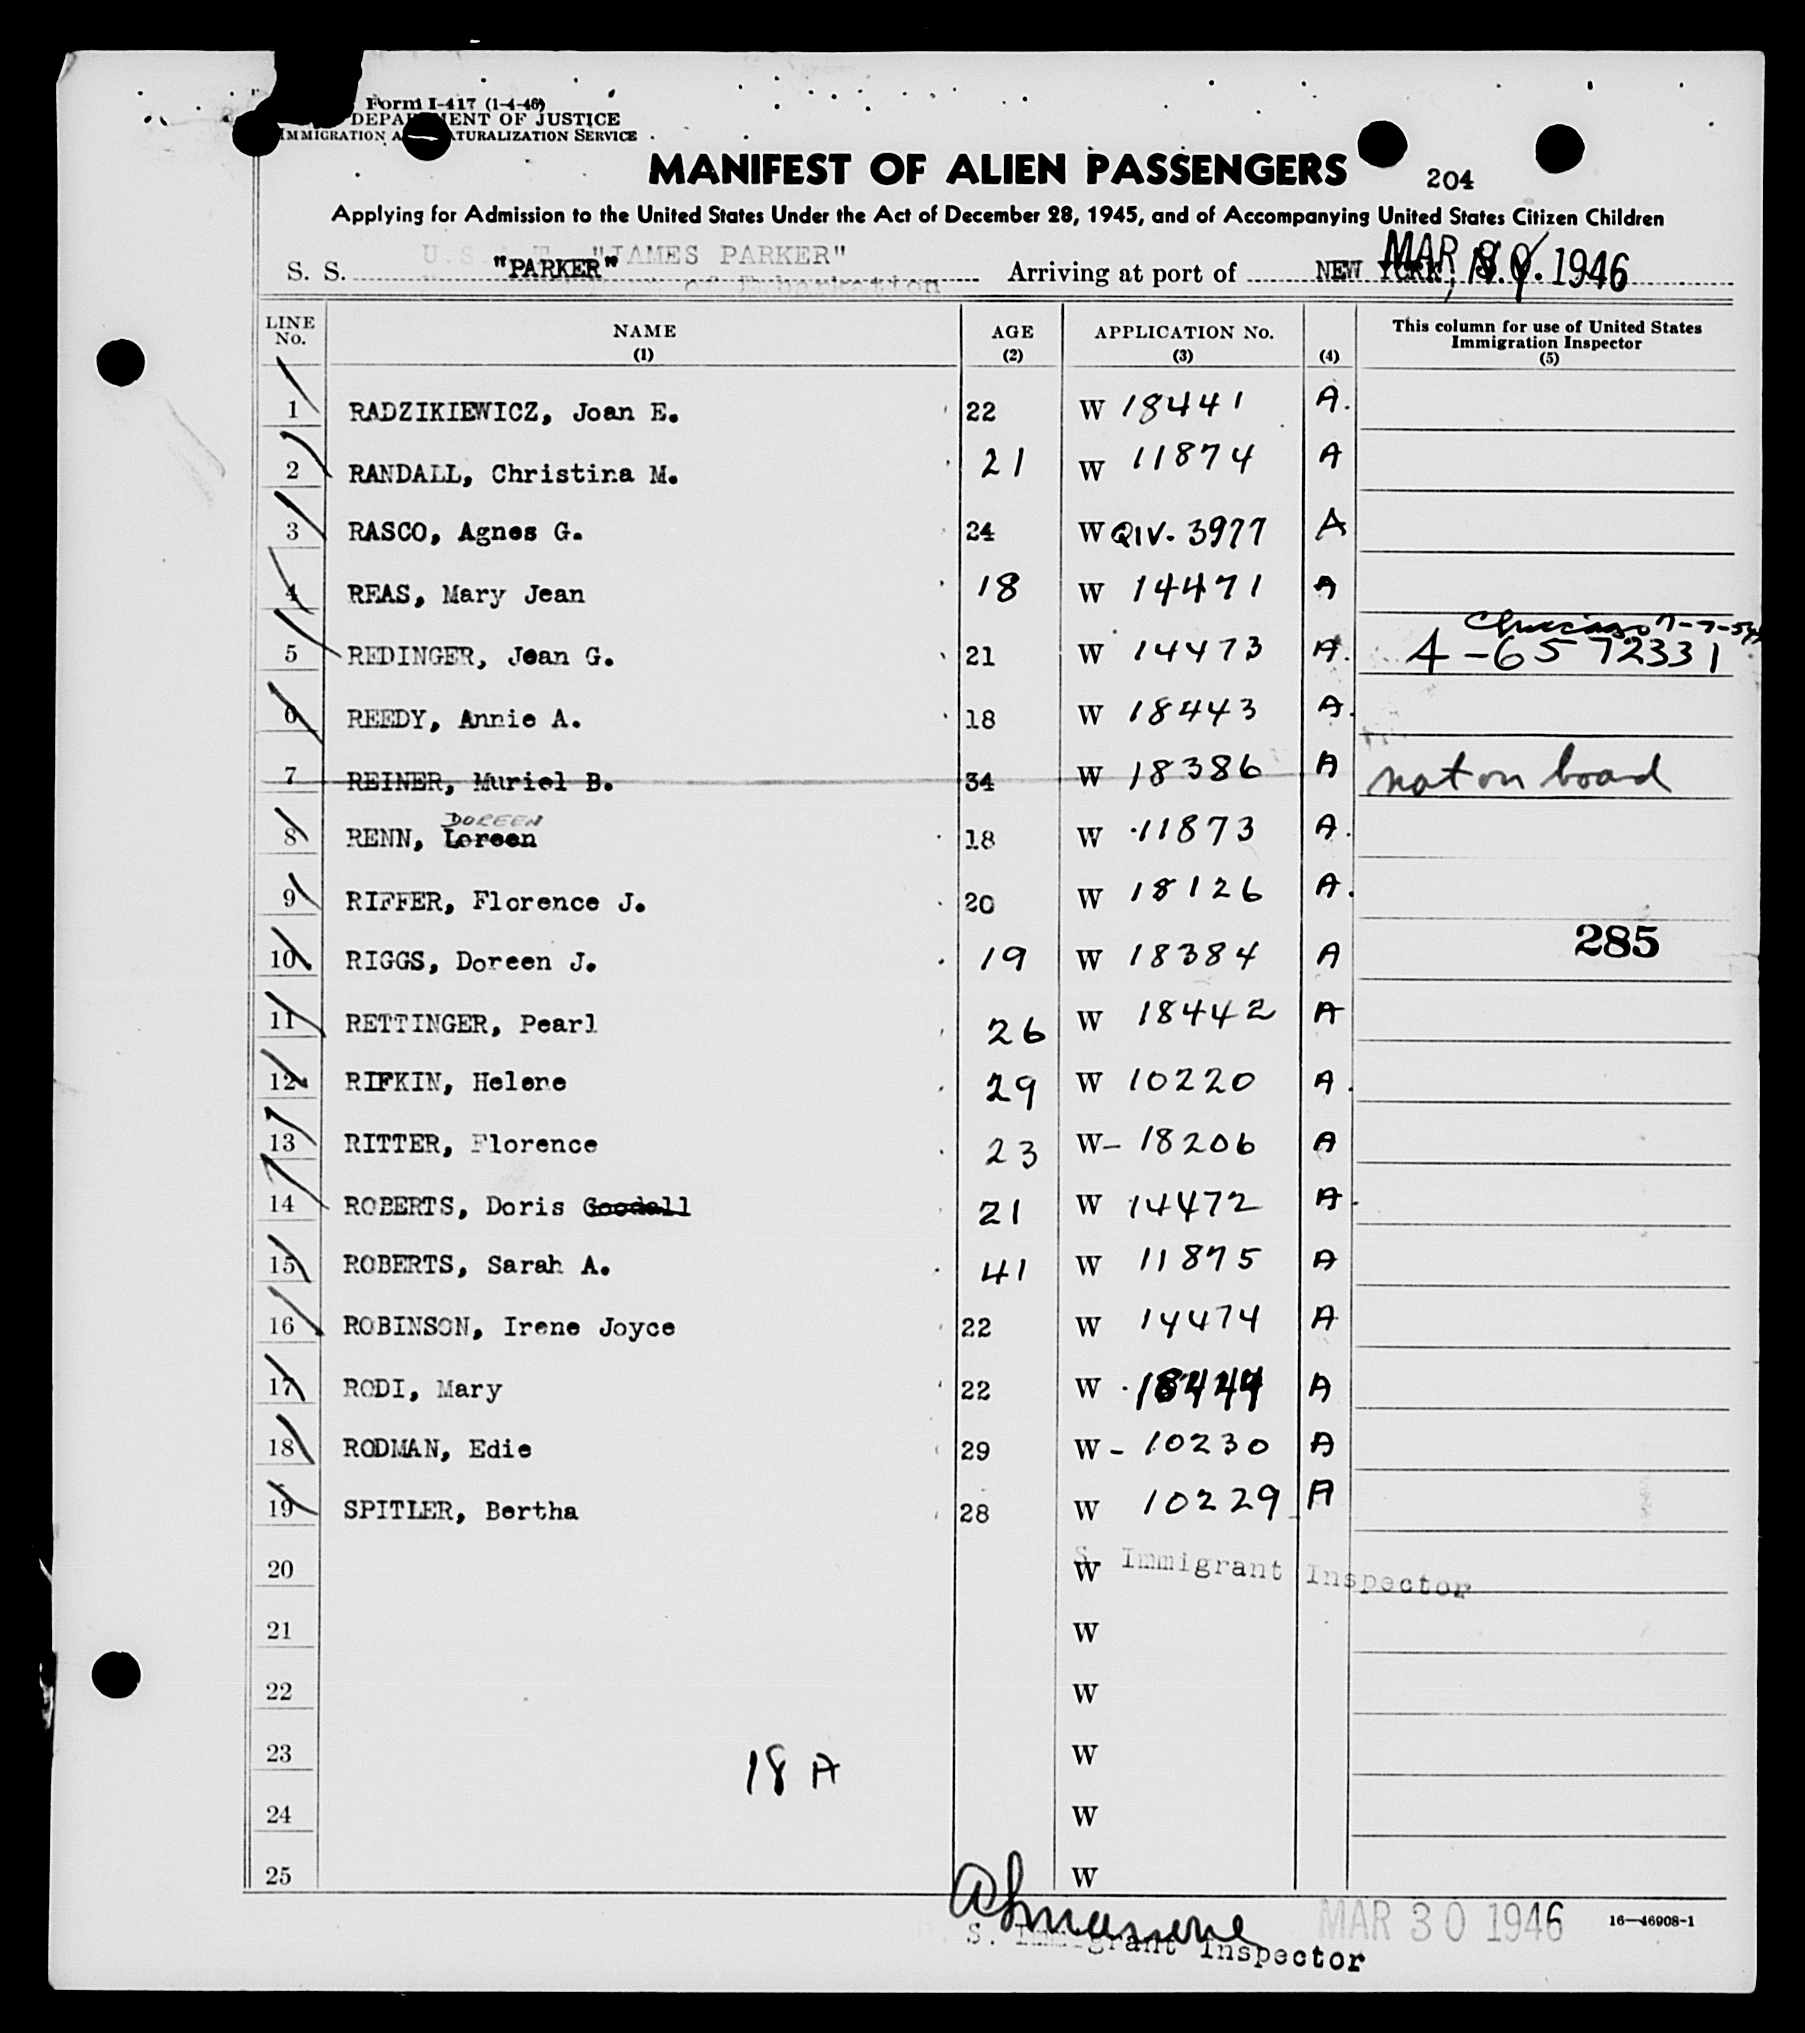 Form I-417 (1-4-46)
DEPARTMENT OF JUSTICE
IMMIGRATION AND NATURALIZATION SERVICE
MANIFEST OF ALIEN PASSENGERS 204
Applying for Admission to the United States Under the Act of December 28, 1945, and of Accompanying United States Citizen Children
"JAMES PARKER"
S. S. "PARKER" Arriving at port of NEW YORK, N.Y. MAR 1946
of Embarkation
LINE No. NAME (1) AGE (2) APPLICATION No. (3) (4) This column for use of United States Immigration Inspector (5)
1 RADZIKIEWICZ, Joan E. 22 W 18441 A.
2 RANDALL, Christina M. 21 W 11874 A
3 RASCO, Agnes G. 24 W QIV. 3977 A
4 REAS, Mary Jean 18 W 14471 A
5 REDINGER, Jean G. 21 W 14473 A. A-6572331
6 REEDY, Annie A. 18 W 18443 A.
7 REINER, Muriel B. 34 W 18386 A not on board
DOREEN
8 RENN, Loreen 18 W 11873 A.
9 RIFFER, Florence J. 20 W 18126 A.
285
10 RIGGS, Doreen J. 19 W 18384 A
11 RETTINGER, Pearl 26 W 18442 A
12 RIFKIN, Helene 29 W 10220 A.
13 RITTER, Florence 23 W- 18206 A
14 ROBERTS, Doris Goodall 21 W 14472 A.
15 ROBERTS, Sarah A. 41 W 11875 A
16 ROBINSON, Irene Joyce 22 W 14474 A
17 RODI, Mary 22 W 18444 A
18 RODMAN, Edie 29 W - 10230 A
19 SPITLER, Bertha 28 W 10229 A
20 W S. Immigrant Inspector
21 W
22 W
23 W
18 A
24 W
25 W
MAR 30 1946 16—46908-1
S. Immigrant Inspector